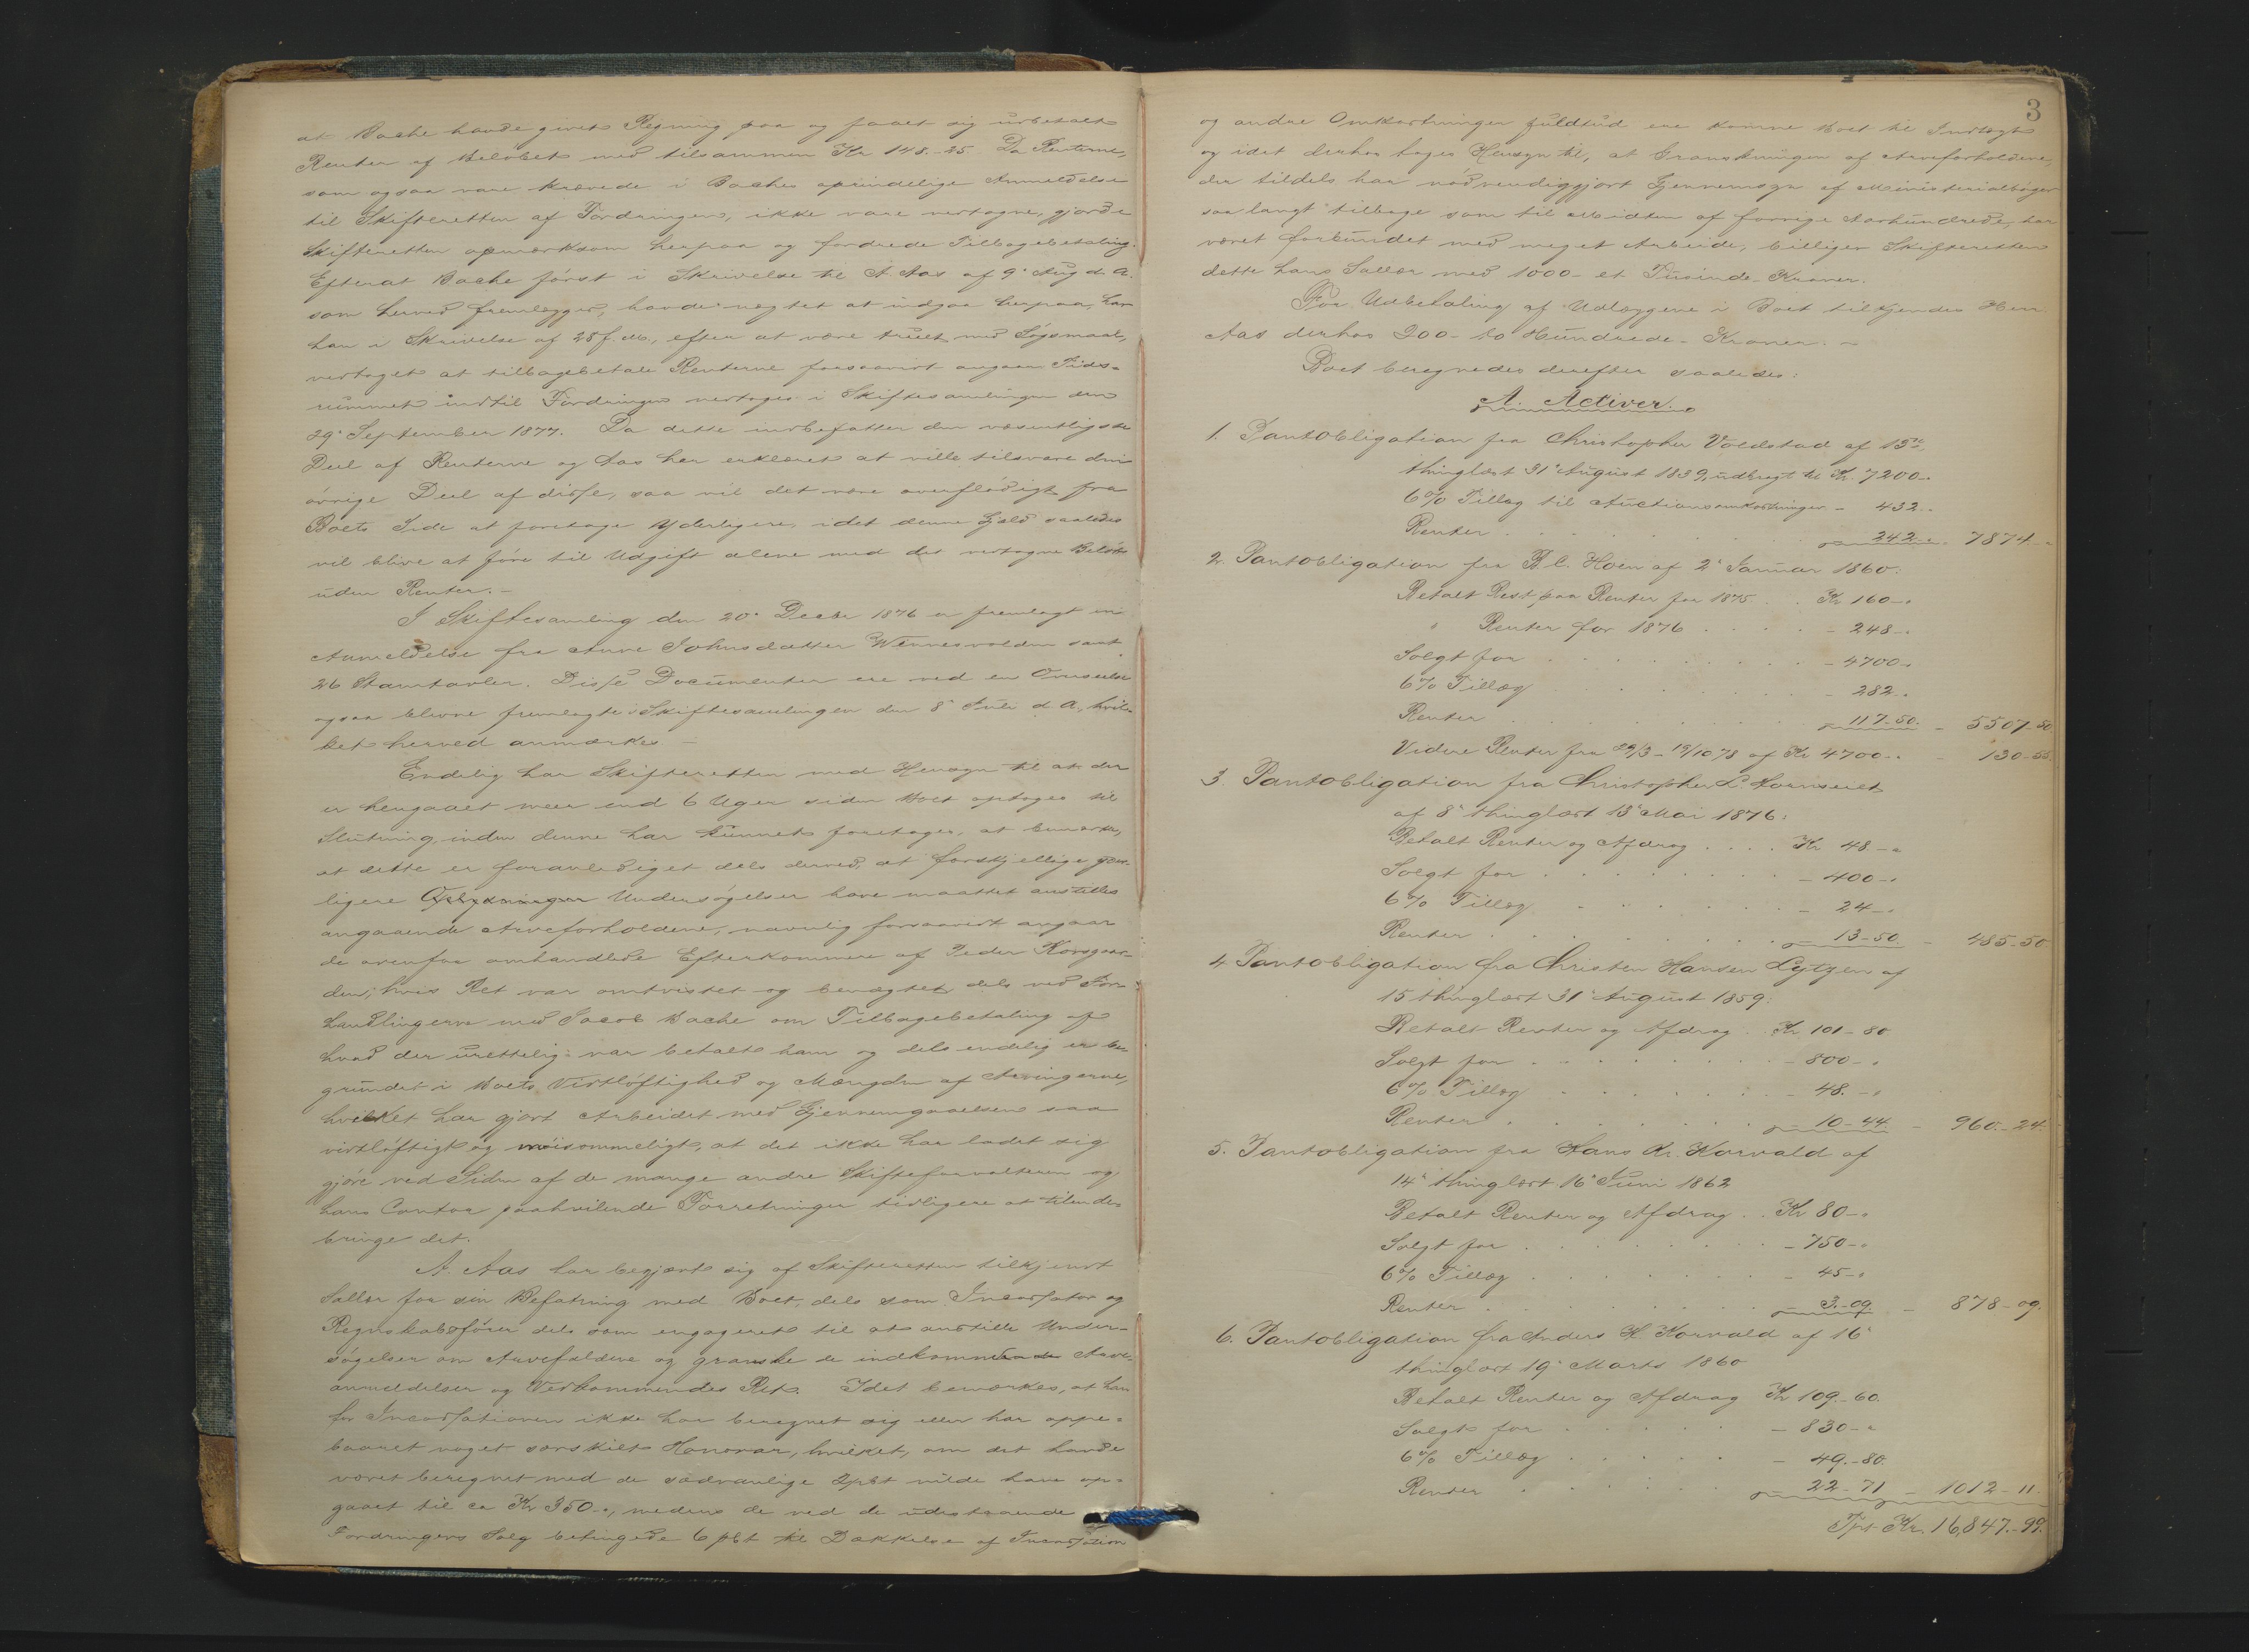 at Bache havde givet Regning paa og faaet sig udbetalt
Renter af Beløbet med tilsammen Kr 148.-25. Da Renterne,
som ogsaa vare krævede i Baches oprindelige Anmeldelse
til Skifteretten af Fordringen, ikke vare vedtagne, gjorde
Skifteretten opmærksom herpaa og fordrede Tilbagebetaling.
Efterat Bache først i Skrivelse til A Aas af 9' Aug d. A.
som herved fremlægges, havde nægtet at indgaa herpaa, har
han i Skrivelse af 28 f. M., efter at være truet med Søgsmaal,
vedtaget at tilbagebetale Renterne forsaavidt angaar Tids-
rummet indtil Fordringen vedtoges i Skiftesamlingen den
29' September 1877. Da dette indbefatter den væsentligste
Deel af Renterne og Aas har erklæret at ville tilsvare den
øvrige Deel af disse, saa vil det være overflødigt fra
Boets Side at foretage Yderligere, idet denne Gjeld saaledes
vil blive at føre til Udgift alene med det vedtagne Beløb
uden Renter. -
I Skiftesamling den 20' Decbr 1876 er fremlagt en
Anmeldelse fra Anne Johnsdatter Wennesvolden samt
26 Stamtavler. Disse Documenter ere ved en
ogsaa blevne fremlagte i Skiftesamlingen den 8' Juli d. A., hvil-
ket herved anmærkes -
Endelig har Skifteretten med Hensyn til at der
er hengaaet meer end 6 Uger siden Boet optoges til
Slutning, inden denne har kunnet foretages, at bemærke,
at dette er foranlediget dels derved, at forskjellige
ligere Oplysninger Undersøgelser have maattet anstilles
angaaende Arveforholdene, navnlig forsaavidt angaar
de ovenfor omhandlede Efterkommere af Peder Korsgaar-
den, hvis Ret var omtvistet og benægtet, dels ved For-
handlingerne med Jacob Bache om Tilbagebetaling af
hvad der urettelig var betalt ham og dels endelig er be-
grundet i Boets Vidtløftighed og Mængden af Arvingerne,
hvilket har gjort Arbeidet med Gjennemgaaelsen saa
vidtløftigt og møisommeligt, at det ikke har ladet sig
gjøre ved Siden af de mange andre Skifteforvalteren og
hans Contor paahvilende Forretninger tidligere at tilende-
bringe det.
A. Aas har begjært sig af Skifteretten tilkjendt
Sallær for sin Befatning med Boet, dels som Incassator og
Regnskabsfører dels som engageret til at anstille Under-
søgelser om Arvefaldene og granske de indkommende Arve-
anmeldelser og Vedkommendes Ret. Idet bemærkes, at han
for Incassationen ikke har beregnet sig eller har oppe-
baaret noget særskilt Honorar, hvilket, om det havde
været beregnet med de sædvanlige 2 pCt vilde have op-
gaaet til ca Kr 350-", medens de ved de udestaaende
Fordringers Salg betingede 6 pCt til Dækkelse af Incassation
3
og andre Omkostninger fuldtud ere komne Boet til Indtægt
og idet derhos tages Hensyn til, at Granskningen af Arveforholdene,
der tildels har nødvendiggjort Gjennemsyn af Ministerialbøger
saa langt tilbage som til Midten af forrige Aarhundrede, har
været forbundet med meget Arbeide, billiger Skifteretten
dette hans Sallær med 1000- et Tusinde Kroner.
For Udbetaling af Udlæggene i Boet tilkjendes Herr
Aas derhos 200- to Hundrede- Kroner. -
Boet beregnedes derefter saaledes:
A. Activer.
1. Pantobligation fra Christopher Voldstad af 15de,
thinglæst 31' August 1839, udbragt til Kr. 7200-"
6% Tillæg til Auctionsomkostninger - 432-"
Renter . . . 242-" - 7874-"
2. Pantobligation fra B. C. Hoen af 2' Januar 1860:
Betalt Rest paa Renter for 1875 . . Kr 160-"
" Renter for 1876 . . . - 248-"
Solgt for . . . - 4700-"
6% Tillæg . . . - 282-"
Renter . . . - 117-50. - 5507-50
Videre Renter fra 29/3 - 19/10 78 af Kr 4700-" - 130-55.
3. Pantobligation fra Christopher L. Hornseiet
af 8' thinglæst 13' Mai 1876:
Betalt Renter og Afdrag . . . Kr 48.-"
Solgt for . . . - 400-"
6% Tillæg . . . - 24-"
Renter . . . - 13-50. - 485-50.
4. Pantobligation fra Christen Hansen Lytzen af
15 thinglæst 31' August 1859:
Betalt Renter og Afdrag . . Kr 101-80
Solgt for . . . - 800-"
6% Tillæg . . . - 48.-"
Renter . . . - 10-44. - 960.-24.
5. Pantobligation fra Hans Kr. Korvald af
14' thinglæst 16' Juni 1862
Betalt Renter og Afdrag . . Kr 80-"
Solgt for . . . - 750-"
6% Tillæg . . . - 45-"
Renter . . . - 3.-09. - 878-09.
6. Pantobligation fra Anders H. Korvald af 16'
thinglæst 19' Marts 1860
Betalt Renter og Afdrag Kr 109.-60.
Solgt for . . . - 830-"
6% Tillæg . . . - 49.-80.
Renter . . . - 22-71 - 1012-11.
Tpt Kr. 16,847.-99.